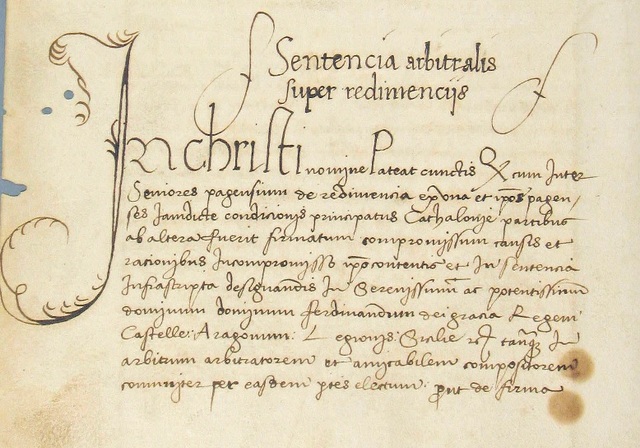 Sentencia arbitralis
super redimencijs
In christi nomine Pateat cunctis Q cum Inter
Seniores pagensium de redimencia ex vna et ipos pagen
ses Jamdicte condicionis principatus Cathalonie partibus
ab altera fuerit firmatum compromissum causis et
racionibus Incompromisso ipo contentis et In sentencia
Infrascripta designandis In Serenissimum ac potentissimum
dominum dominum ferdinandum dei gracia Regem
Castelle: Aragonum: Legionis: Sicilie tanq In
arbitrum arbitratorem et amicabilem compositorem
comuniter per easdem ptes electum: prout de firma